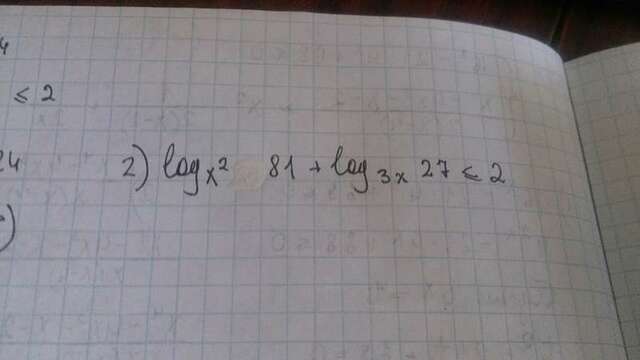 4
≤ 2
24
2) log_{x^2} 81 + log_{3x} 27 ≤ 2
)